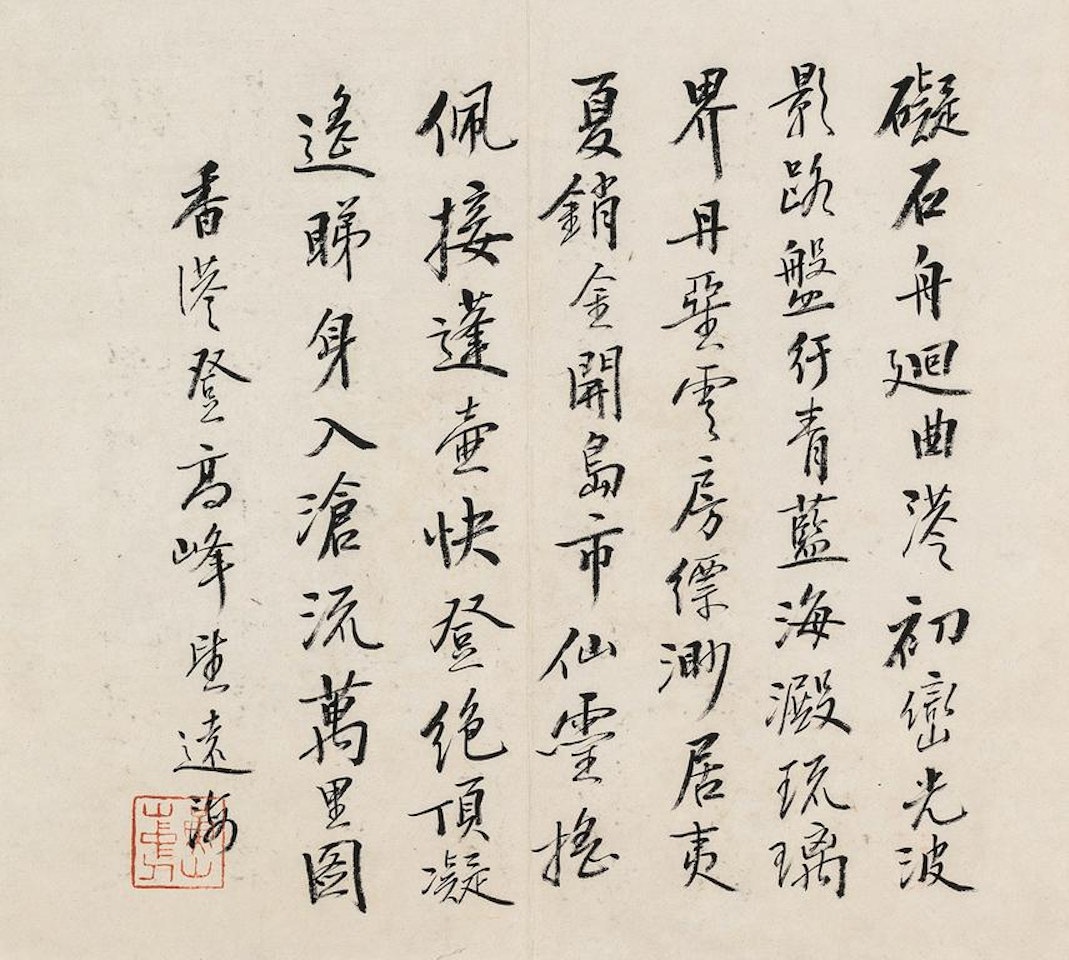 礙石舟廻曲港初巒光波
影路盤紆青藍海澱琉璃
界丹堊雲房縹渺居夷
夏銷金開島市仙靈搖
佩接蓬壺快登絕頂凝
遙睇身入滄流萬里圖
香港登高峰望遠海